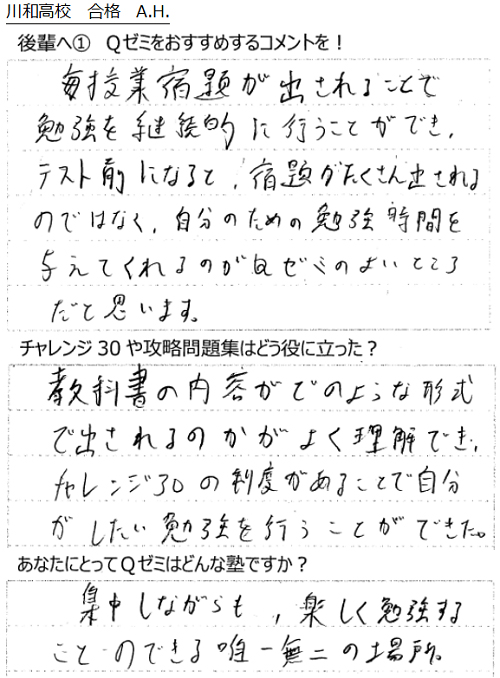 川和高校　合格　A.H.
後輩へ①　Qゼミをおすすめするコメントを！
毎授業宿題が出されることで
勉強を継続的に行うことができ、
テスト前になると、宿題がたくさん出される
のではなく、自分のための勉強時間を
与えてくれるのがQゼミのよいところ
だと思います。
チャレンジ30や攻略問題集はどう役に立った？
教科書の内容がどのような形式
で出されるのかがよく理解でき、
チャレンジ30の制度があることで自分
がしたい勉強を行うことができた。
あなたにとってQゼミはどんな塾ですか？
集中しながらも、楽しく勉強する
ことのできる唯一無二の場所。